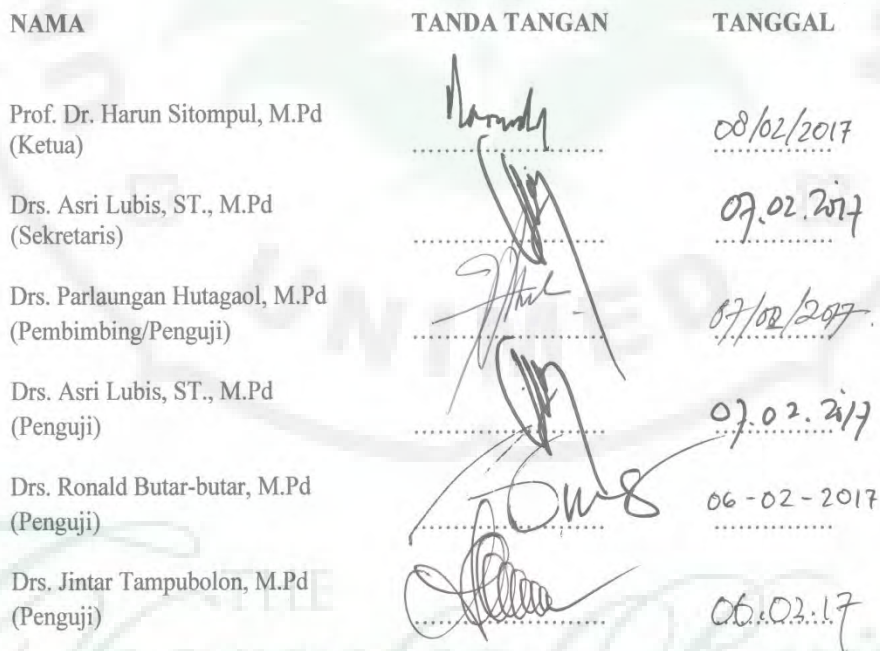 NAMA TANDA TANGAN TANGGAL
Prof. Dr. Harun Sitompul, M.Pd
(Ketua) 08/02/2017
Drs. Asri Lubis, ST., M.Pd
(Sekretaris) 07.02.2017
Drs. Parlaungan Hutagaol, M.Pd
(Pembimbing/Penguji) 07/02/2017.
Drs. Asri Lubis, ST., M.Pd
(Penguji) 07.02.2017
Drs. Ronald Butar-butar, M.Pd
(Penguji) 06-02-2017
Drs. Jintar Tampubolon, M.Pd
(Penguji) 06.02.17
UNIMED
THE